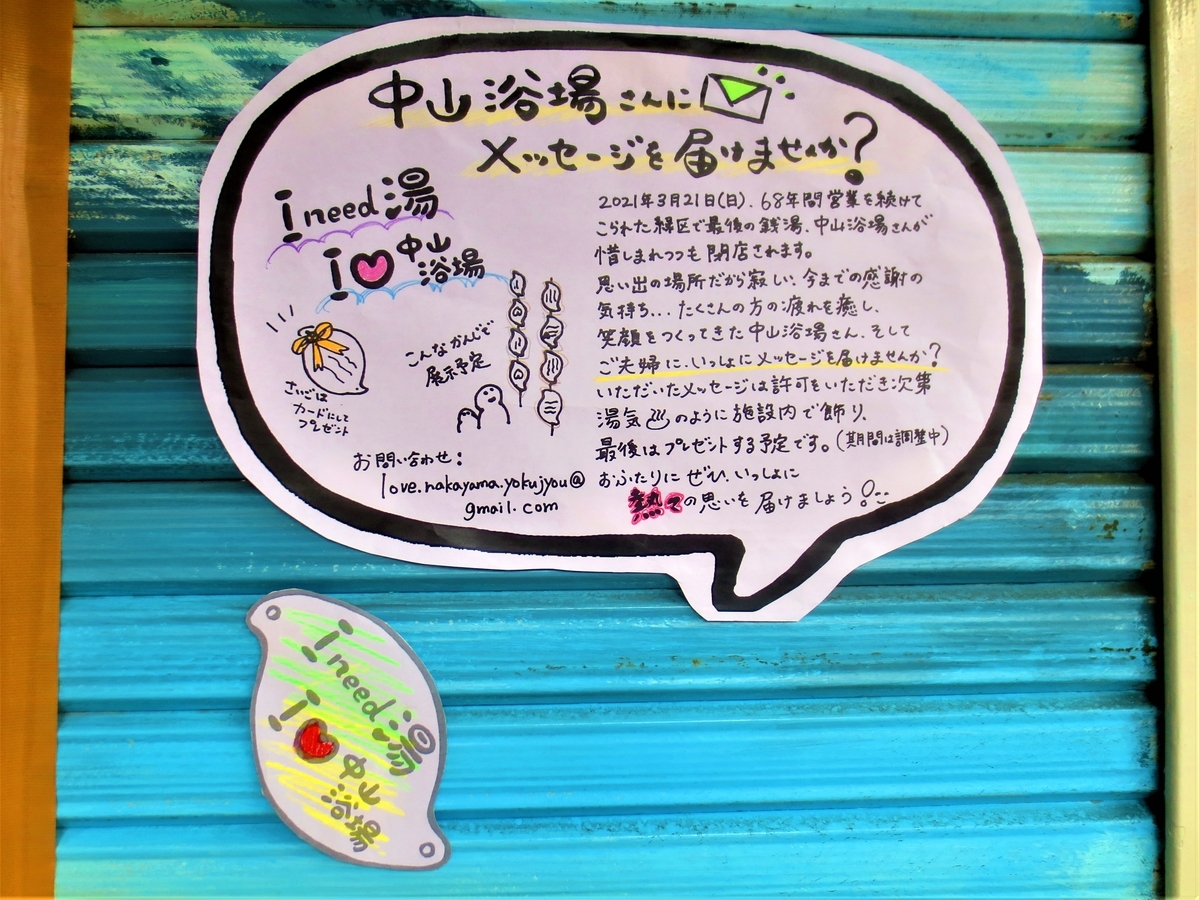 中山浴場さんに
メッセージを届けませんか?
I need 湯
I ♥ 中山
浴場
こんなかんじで
展示予定
さいごは
カードにして
プレゼント
お問い合わせ:
love.nakayama.yokujyou@
gmail.com
2021年3月21日(日)、68年間営業を続けて
こられた緑区で最後の銭湯、中山浴場さんが
惜しまれつつも閉店されます。
思い出の場所だから寂しい、今までの感謝の
気持ち...たくさんの方の疲れを癒し、
笑顔をつくってきた中山浴場さん、そして
ご夫婦に、いっしょにメッセージを届けませんか?
いただいたメッセージは許可をいただき次第
湯気♨のように施設内で飾り、
最後はプレゼントする予定です。(期間は調整中)
おふたりにぜひ、いっしょに
熱々の思いを届けましょう!
I need 湯
I ♥ 中山
浴場